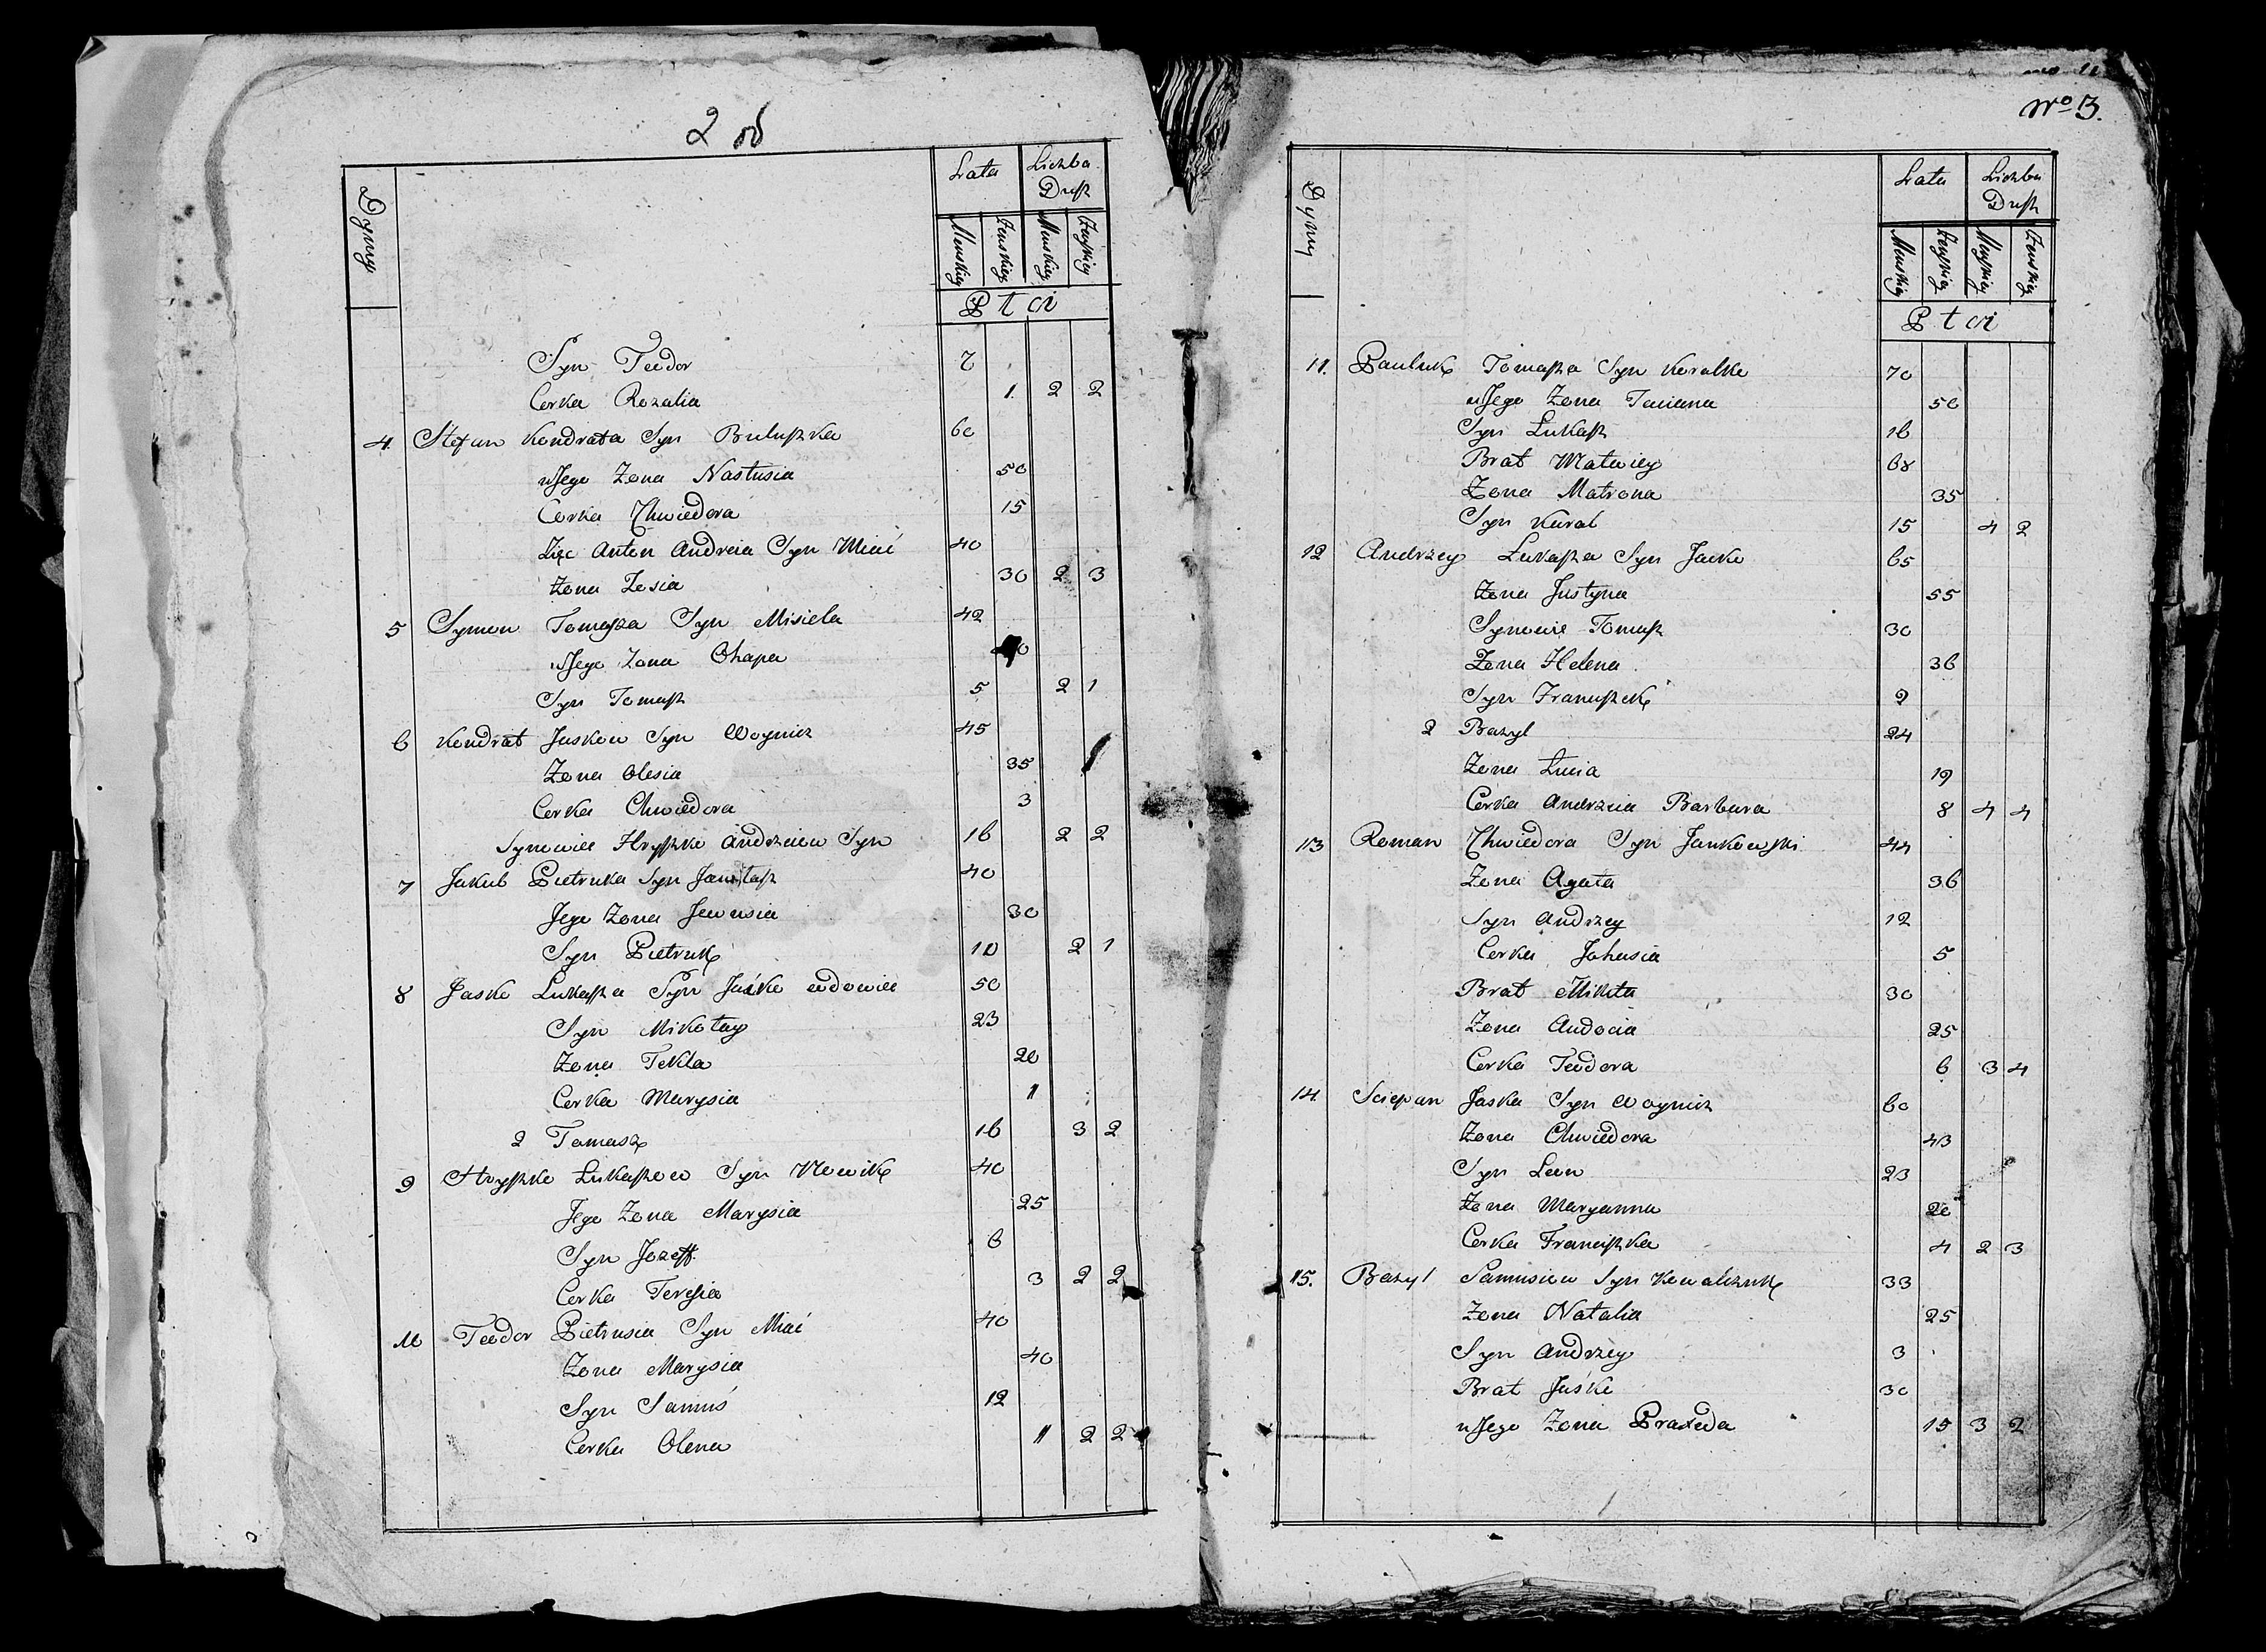 2 od
Dymy
Lata
Liczba Dusz
Menskiey
Zenskiey
Menskiey
Zenskiey
Płci
Syn Teodor 7
Corka Rozalia 1 2 2
4 Stefan Kondrata Syn Buluszka 60
u Jego Zona Nastusia 50
Corka Chwiedora 15
Zięc Anton Andreia Syn Miać 40
Zona Zosia 30 2 3
5 Symon Tomasza Syn Misiela 42
u Jego Zona Ohapa
Syn Tomasz 5 2 1
6 Kondrat Jaskow Syn Woynicz 45
Zona Olesia 35
Corka Chwiedora 3
Synowiec Hryszko Andrzeiew Syn 16 2 2
7 Jakub Pietruka Syn 40
Jego Zona Jewusia 30
Syn Pietruk 10 2 1
8 Jasko Lukasza Syn Jaśko wdowiec 50
Syn Mikołay 23
Zona Tekla 20
Corka Marysia 1
2 Tomasz 16 3 2
9 Hryszko Lukaszow Syn Nowik 40
Jego Zona Marysia 25
Syn Jozeff 6
Corka Teresia 3 2 2
10 Teodor Pietrusia Syn Miać 40
Zona Marysia 40
Syn Samuś 12
Corka Olena 1 2 2
No 3.
Dymy
Lata
Liczba Dusz
Menskiey
Zenskiey
Menskiey
Zenskiey
Płci
11. Pauluk Tomasza Syn Koralko 70
u Jego Zona Taciana 50
Syn Lukasz 16
Brat Matwiey 68
Zona Matrona 35
Syn Karal 15 4 2
12 Andrzey Lukasza Syn Jacko 65
Zona Justyna 55
Synowie Tomasz 30
Zona Helena 36
Syn Franuszek 2
2 Bazyl 24
Zona Lucia 19
Corka Andrzeia Barbara 8 4 4
13 Roman Chwiedora Syn Jankowski 44
Zona Agata 36
Syn Andrzey 12
Corka Johasia 5
Brat Mikita 30
Zona Audocia 25
Corka Teodora 6 3 4
14 Sciepan Jaska Syn Woynicz 60
Zona Chwiedora 43
Syn Leon 23
Zona Maryanna 20
Corka Franciszka 4 2 3
15. Bazyl Samusiew Syn Kowalczuk 33
Zona Natalia 25
Syn Andrzey 3
Brat Jaśko 30
u Jego Zona Praxeda 15 3 2